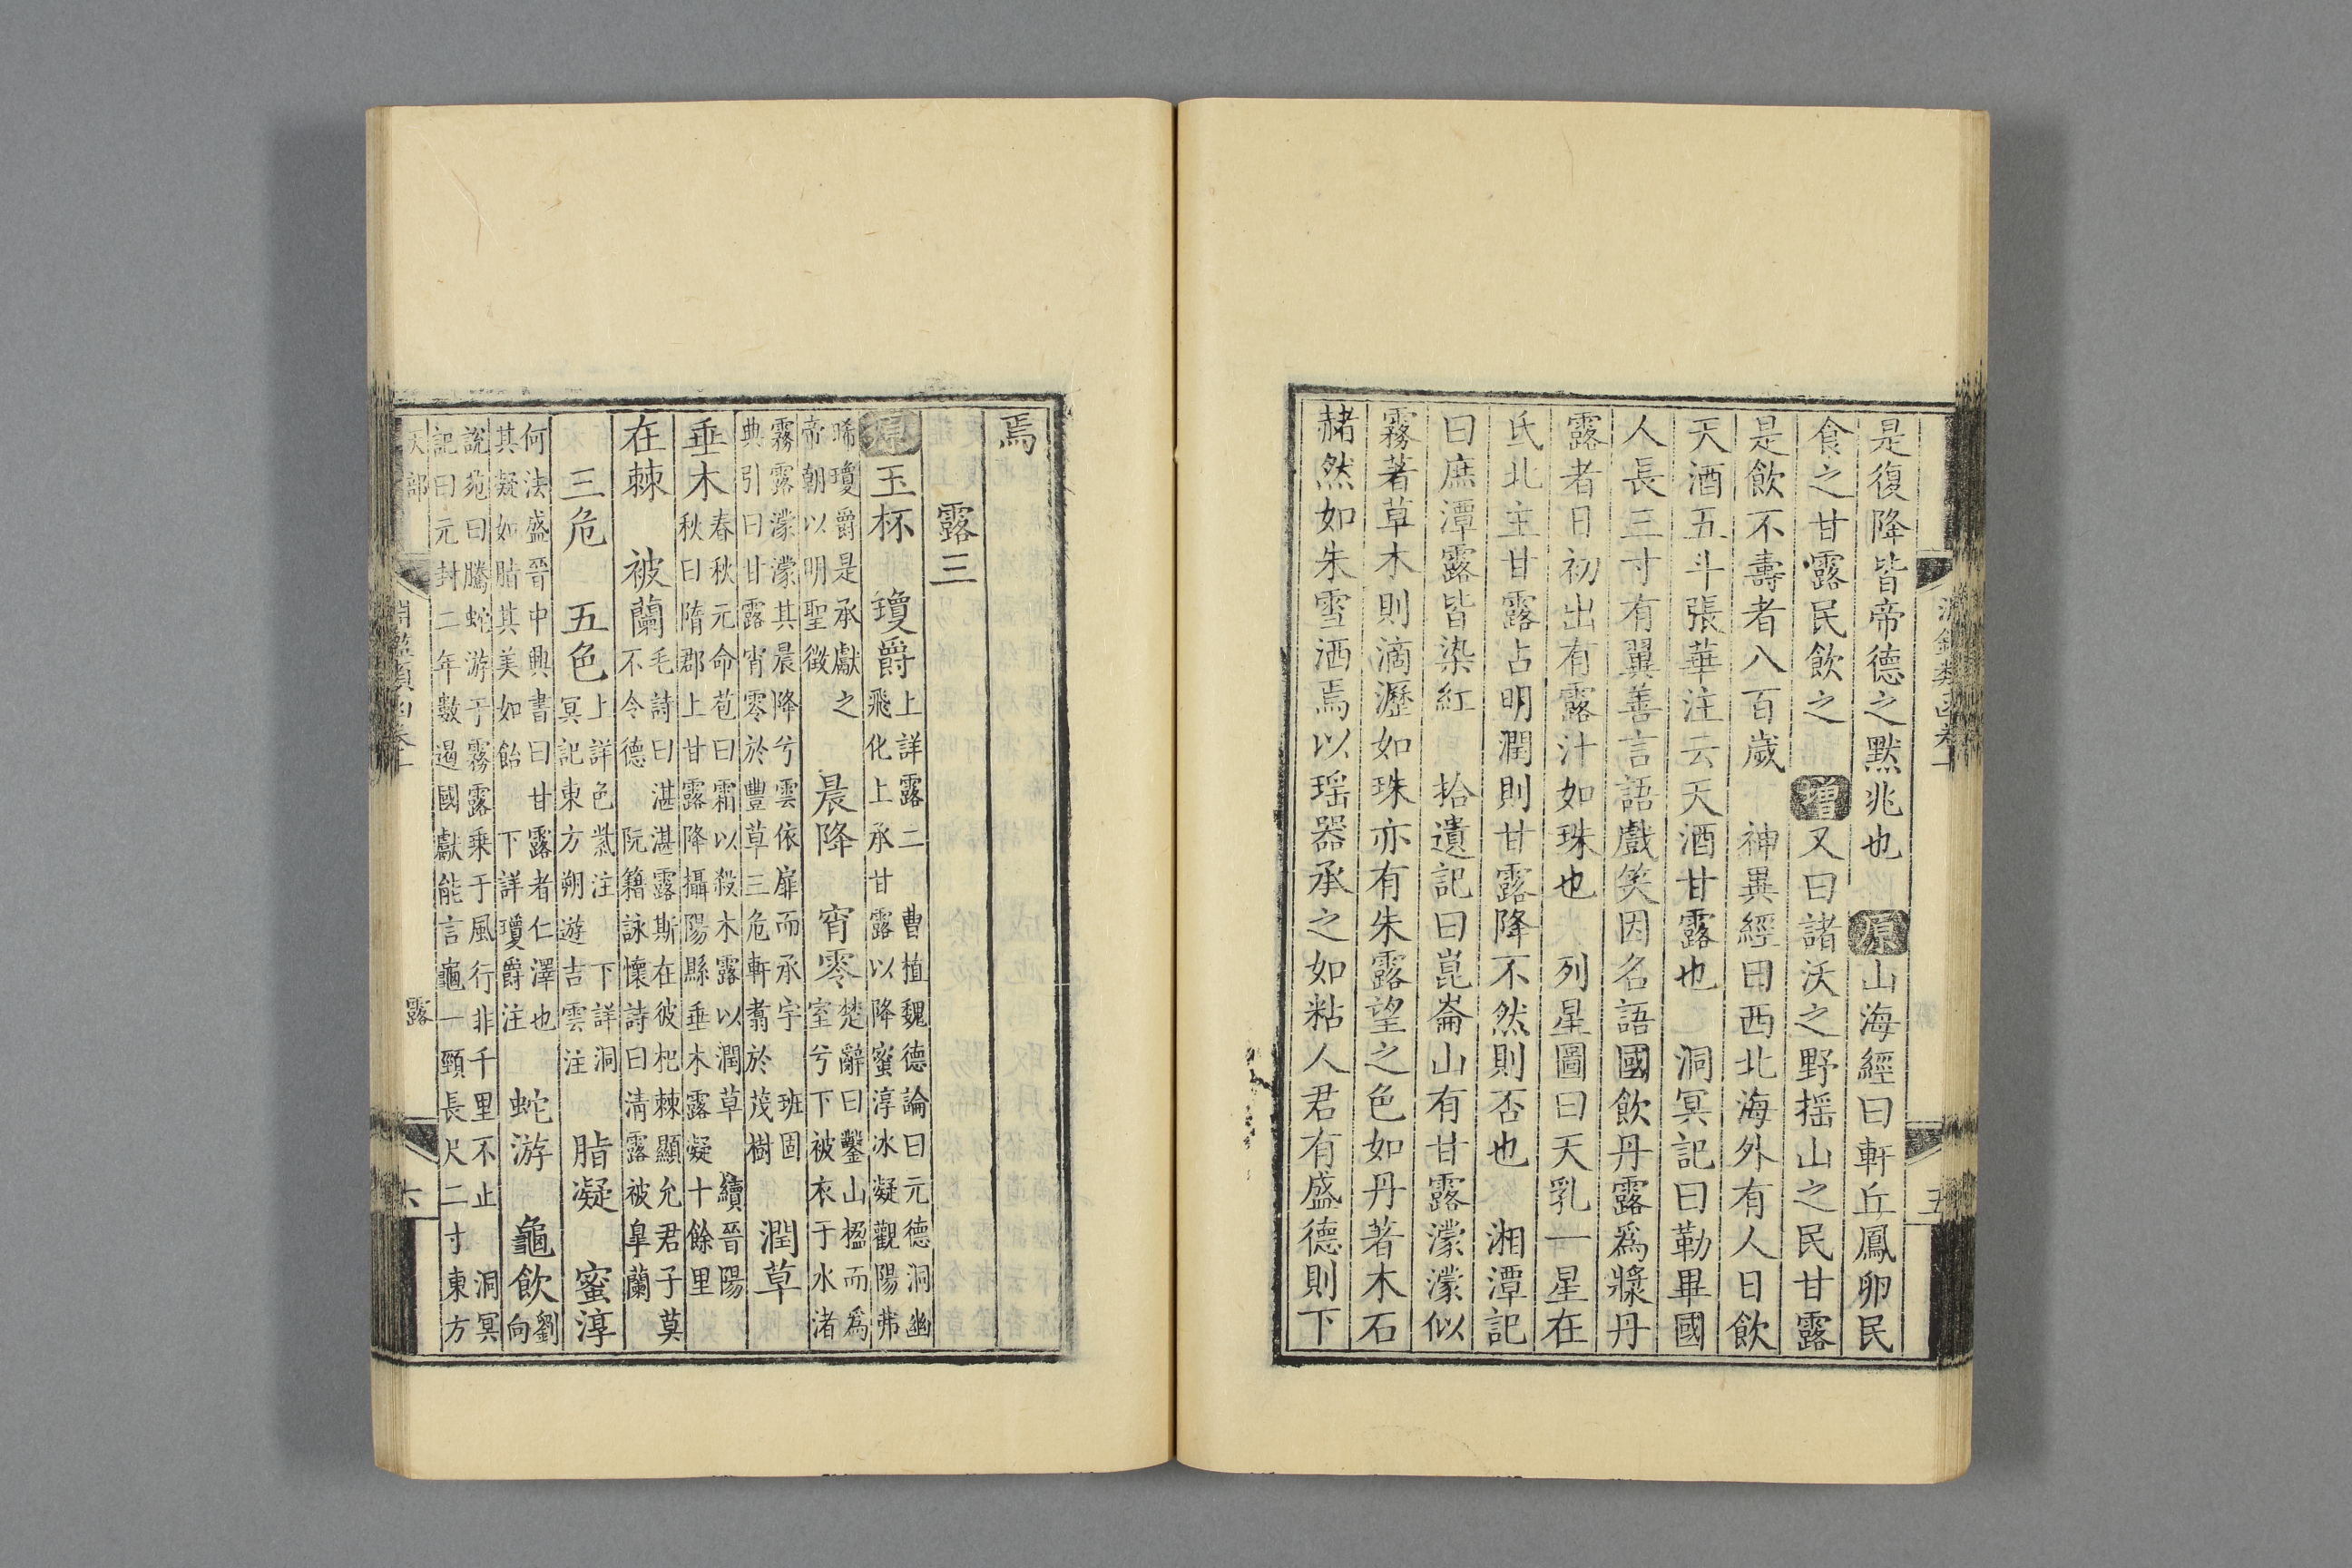 是復降皆帝德之默兆也 原山海經曰軒丘鳳卵民
食之甘露民飲之 增又曰諸沃之野搖山之民甘露
是飲不壽者八百歲 神異經曰西北海外有人日飲
天酒五斗張華注云天酒甘露也 洞冥記曰勒畢國
人長三寸有翼善言語戲笑因名語國飲丹露爲漿丹
露者日初出有露汁如珠也 列星圖曰天乳一星在
氐北主甘露占明潤則甘露降不然則否也 湘潭記
曰庶潭露皆染紅 拾遺記曰崑崙山有甘露濛濛似
霧著草木則滴瀝如珠亦有朱露望之色如丹著木石
赭然如朱雪洒焉以瑶器承之如粘人君有盛德則下
五
焉
露三
原玉杯 瓊爵上詳露二 曹植魏德論曰元德洞幽
飛化上承甘露以降蜜淳冰凝觀陽弗
晞瓊爵是承獻之
帝朝以明聖徵 晨降 宵零楚辭曰鑿山楹而爲
室兮下被衣于水渚
霧露濛濛其晨降兮雲依扉而承宇 班固
典引曰甘露宵零於豐草三危軒翥於茂樹 潤草
垂木春秋元命苞曰霜以殺木露以潤草 續晉陽
秋曰隋郡上甘露降攝陽縣垂木露凝十餘里
在棘 被蘭毛詩曰湛湛露斯在彼杞棘顯允君子莫
不令德 阮籍詠懷詩曰清露被臯蘭
三危 五色上詳色紫注 下詳洞
冥記東方朔遊吉雲注 脂凝 蜜淳
何法盛晉中興書曰甘露者仁澤也
其凝如脂其美如飴 下詳瓊爵注 蛇游 龜飲劉
向
說苑曰騰蛇游于霧露乘于風行非千里不止 洞冥
記曰元封二年數過國獻能言龜一頭長尺二寸東方
天部
淵鑑類函卷十
露
六